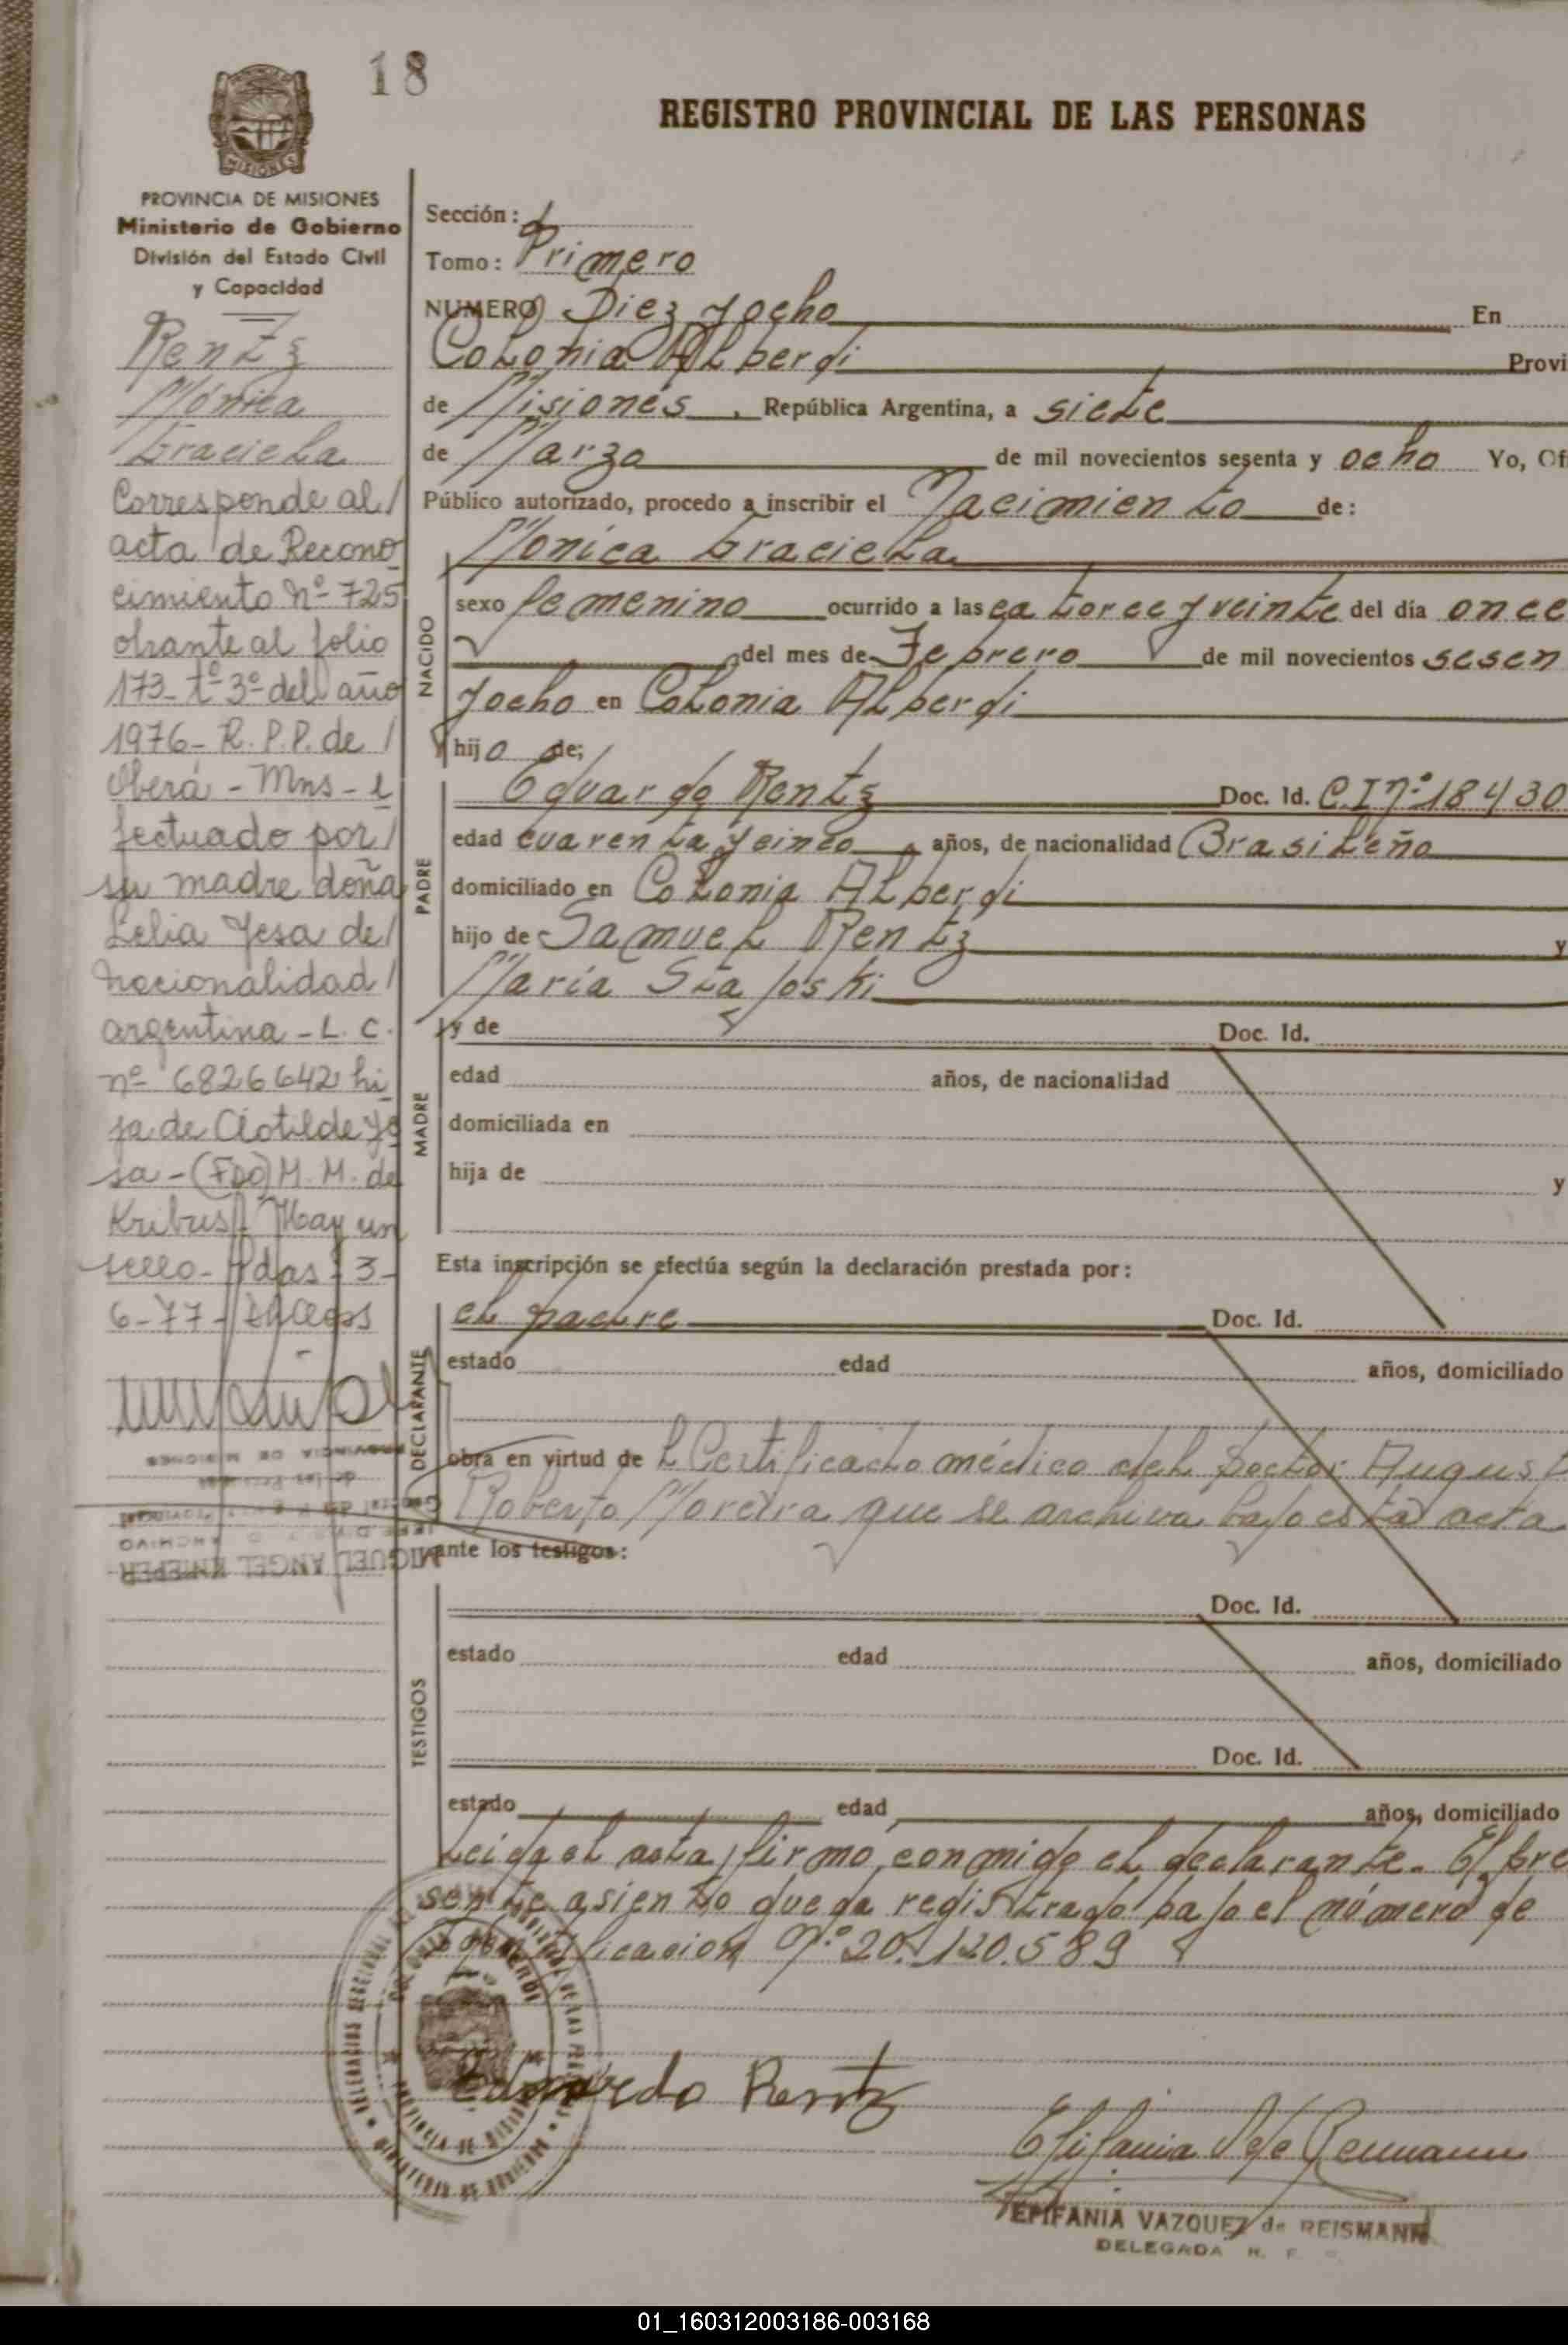 18
REGISTRO PROVINCIAL DE LAS PERSONAS
MISIONES
PROVINCIA DE MISIONES
Ministerio de Gobierno
División del Estado Civil
y Capacidad
Rentz
Mónica
Graciela
Corresponde al/
acta de Recono
cimiento Nº 725
obrante al folio
173- tº 3º del año
1976- R. P. P. de /
Oberá - Mns - e
fectuado por/
su madre doña
Lelia Yesa de/
nacionalidad/
argentina - L. C.
nº 6826642 hi
ja de Clotilde Ye
sa - (Fdo) M. M. de
Kribus/ Hay un
sello- Pdas 3-
6-77-
PROVINCIA DE MISIONES
de las Personas
ARCHIVO
MIGUEL ANGEL KNIEPER
Sección:
Tomo: Primero
NUMERO Diez y ocho En
Colonia Alberdi Provi
de Misiones, República Argentina, a siete
de Marzo de mil novecientos sesenta y ocho Yo, Of
Público autorizado, procedo a inscribir el Nacimiento de:
NACIDO
Mónica Graciela
sexo femenino ocurrido a las catorce y veinte del día once
del mes de Febrero de mil novecientos sesen
y ocho en Colonia Alberdi
hijo de:
PADRE
Eduardo Rentz Doc. Id. C.I nº 18430
edad cuarenta y cinco años, de nacionalidad Brasileño
domiciliado en Colonia Alberdi
hijo de Samuel Rentz y
María Stajoski
MADRE
y de Doc. Id.
edad años, de nacionalidad
domiciliada en
hija de y
Esta inscripción se efectúa según la declaración prestada por:
DECLARANTE
el padre Doc. Id.
estado edad años, domiciliado
obra en virtud de l Certificado médico del Doctor August
Roberto Moreira que se archiva bajo esta acta
ante los testigos:
TESTIGOS
Doc. Id.
estado edad años, domiciliado
Doc. Id.
estado edad años, domiciliado
Leida el acta, firmo, conmigo el declarante. El pre
sente asiento queda registrado bajo el número de
identificacion Nº 20.120.589
Eduardo Rentz
Epifania V de Reismann
EPIFANIA VAZQUEZ de REISMANN
DELEGADA
01_160312003186-003168